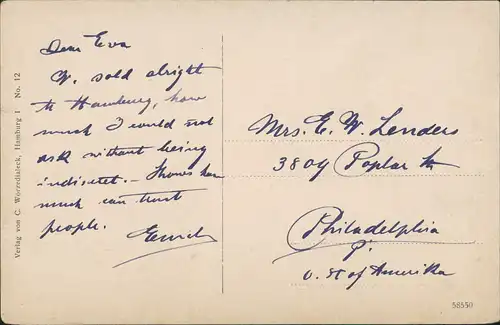 Dear Eva
W. sold alright
to Hamburg, how
much I would not
ask without being
indiscret. - Shows how
much can trust
people.
Emil
Mrs. E. W. Lenders
3804 Poplar Str
Philadelphia
P.
U. St of Amerika
Verlag von C. Worzedialeck, Hamburg I No. 12
58550